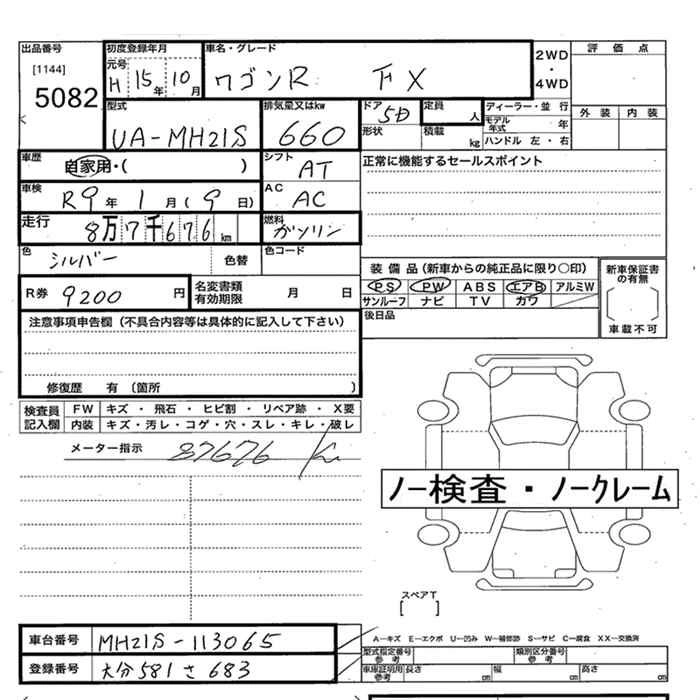 出品番号 初度登録年月 車名・グレード 2WD・4WD 評価点
[1144] 5082 元号 H 15年 10月 ワゴンR FX
外装 内装
型式 UA-MH21S 排気量又はkw 660 ドア 5D 形状 定員 人 積載 kg ディーラー・並行 モデル年式 年 ハンドル 左・右
車歴 自家用・( ) シフト AT 正常に機能するセールスポイント
車検 R9年 1月(9日) AC AC
走行 8万7千676km 燃料 ガソリン
色 シルバー 色替 色コード
装備品(新車からの純正品に限り〇印) 新車保証書の有無
R券 9200円 名変書類有効期限 月 日 PS PW ABS エアB アルミW
サンルーフ ナビ TV カワ 車載不可
注意事項申告欄(不具合内容等は具体的に記入して下さい) 後日品
修復歴 有 (箇所 )
検査員記入欄 FW キズ・飛石・ヒビ割・リペア跡・X要
内装 キズ・汚レ・コゲ・穴・スレ・キレ・破レ
メーター指示 87676 Km
ノー検査・ノークレーム
スペアT
[ ]
車台番号 MH21S-113065 A―キズ E―エクボ U―凹み W―補修跡 S―サビ C―腐食 XX―交換済
登録番号 大分581さ683 型式指定番号 参考 類別区分番号 参考
車庫証明用 参考 長さ cm 幅 cm 高さ cm